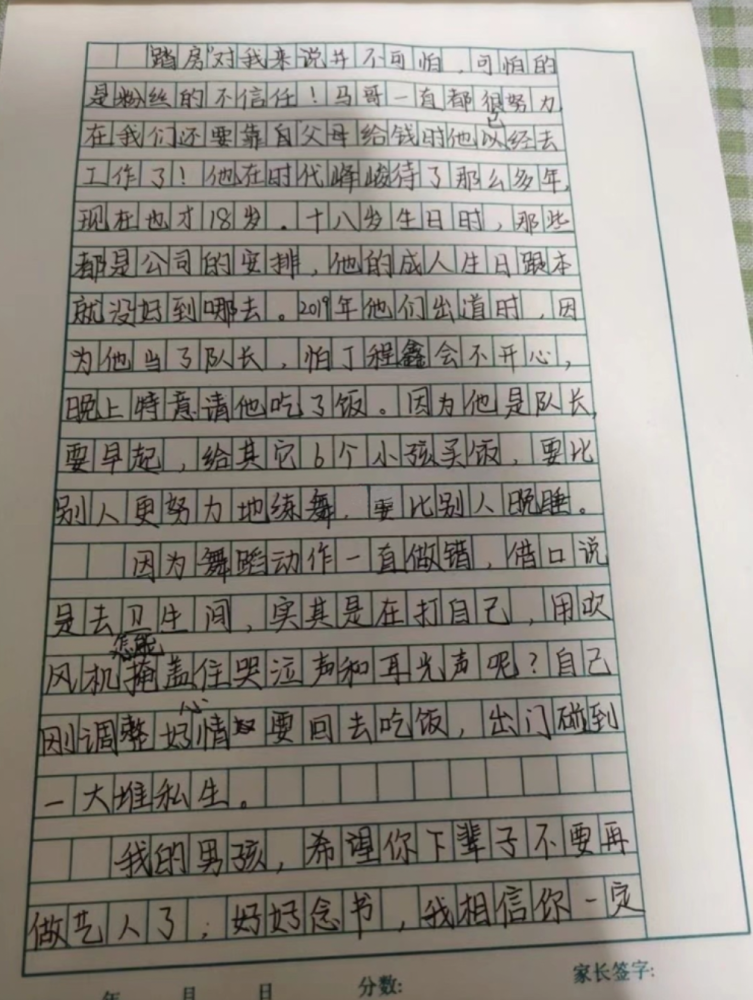 “踏房”对我来说并不可怕，可怕的
是粉丝的不信任！马哥一直都很努力
在我们还要靠自父母给钱时他以经去
己
工作了！他在时代峰峻待了那么多年，
现在也才18岁。十八岁生日时，那些
都是公司的安排，他的成人生日跟本
就没好到哪去。2019年他们出道时，因
为他当了队长，怕丁程鑫会不开心，
晚上特意请他吃了饭。因为他是队长，
要早起，给其它6个小孩买饭，要比
别人更努力地练舞，要比别人晚睡。
因为舞蹈动作一直做错，借口说
是去卫生间，实其是在打自己，用吹
怎能
风机掩盖住哭泣声和耳光声呢？自己
心
刚调整好情要回去吃饭，出门碰到
一大堆私生。
我的男孩，希望你下辈子不要再
做艺人了；好好念书，我相信你一定
年 月 日 分数: 家长签字: